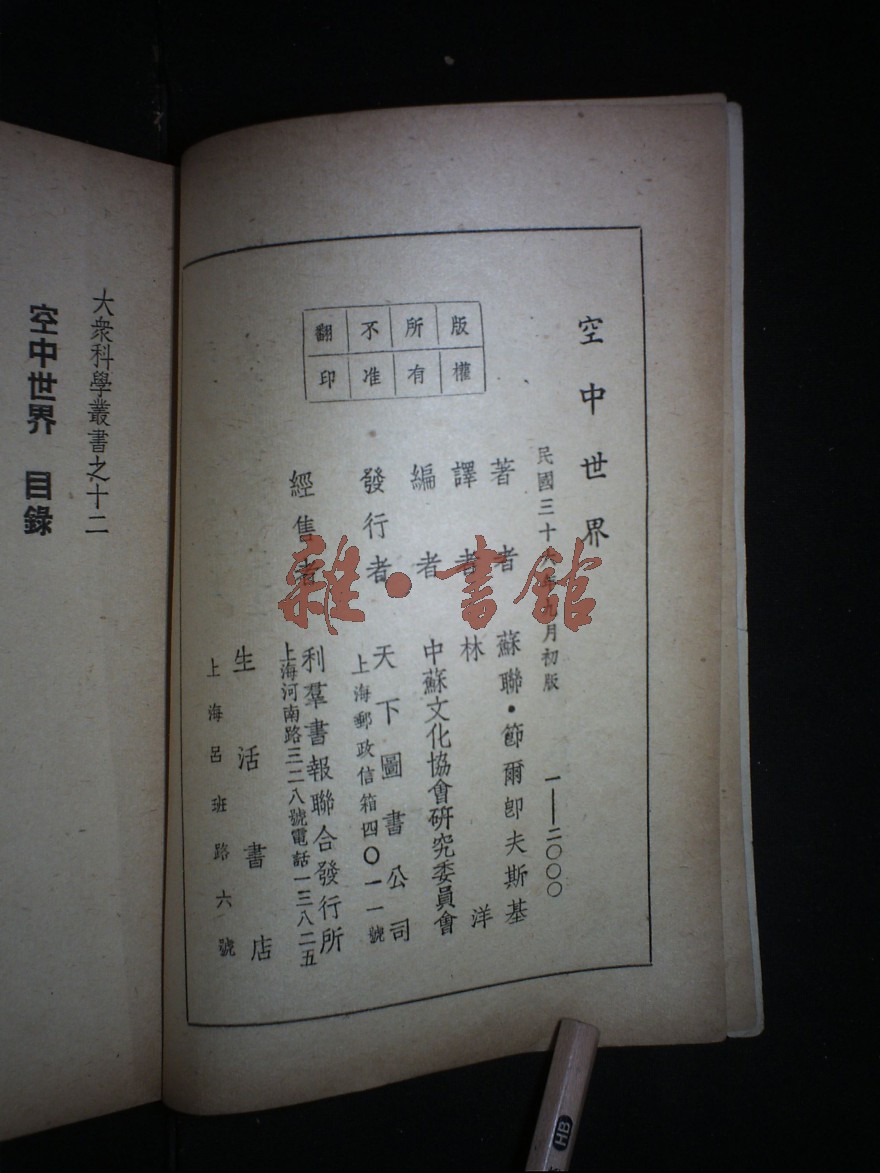 空中世界
民國三十六年九月初版
一—二〇〇〇
著者 蘇聯·節爾卽夫斯基
譯者 林洋
編者 中蘇文化協會硏究委員會
發行者 天下圖書公司
上海郵政信箱四〇一一號
經售者 利羣書報聯合發行所
上海河南路三二八號電話一三八二五
生活書店
上海呂班路六號
版權
所有
不准
翻印
大衆科學叢書之十二
空中世界 目錄
雜·書館
HB